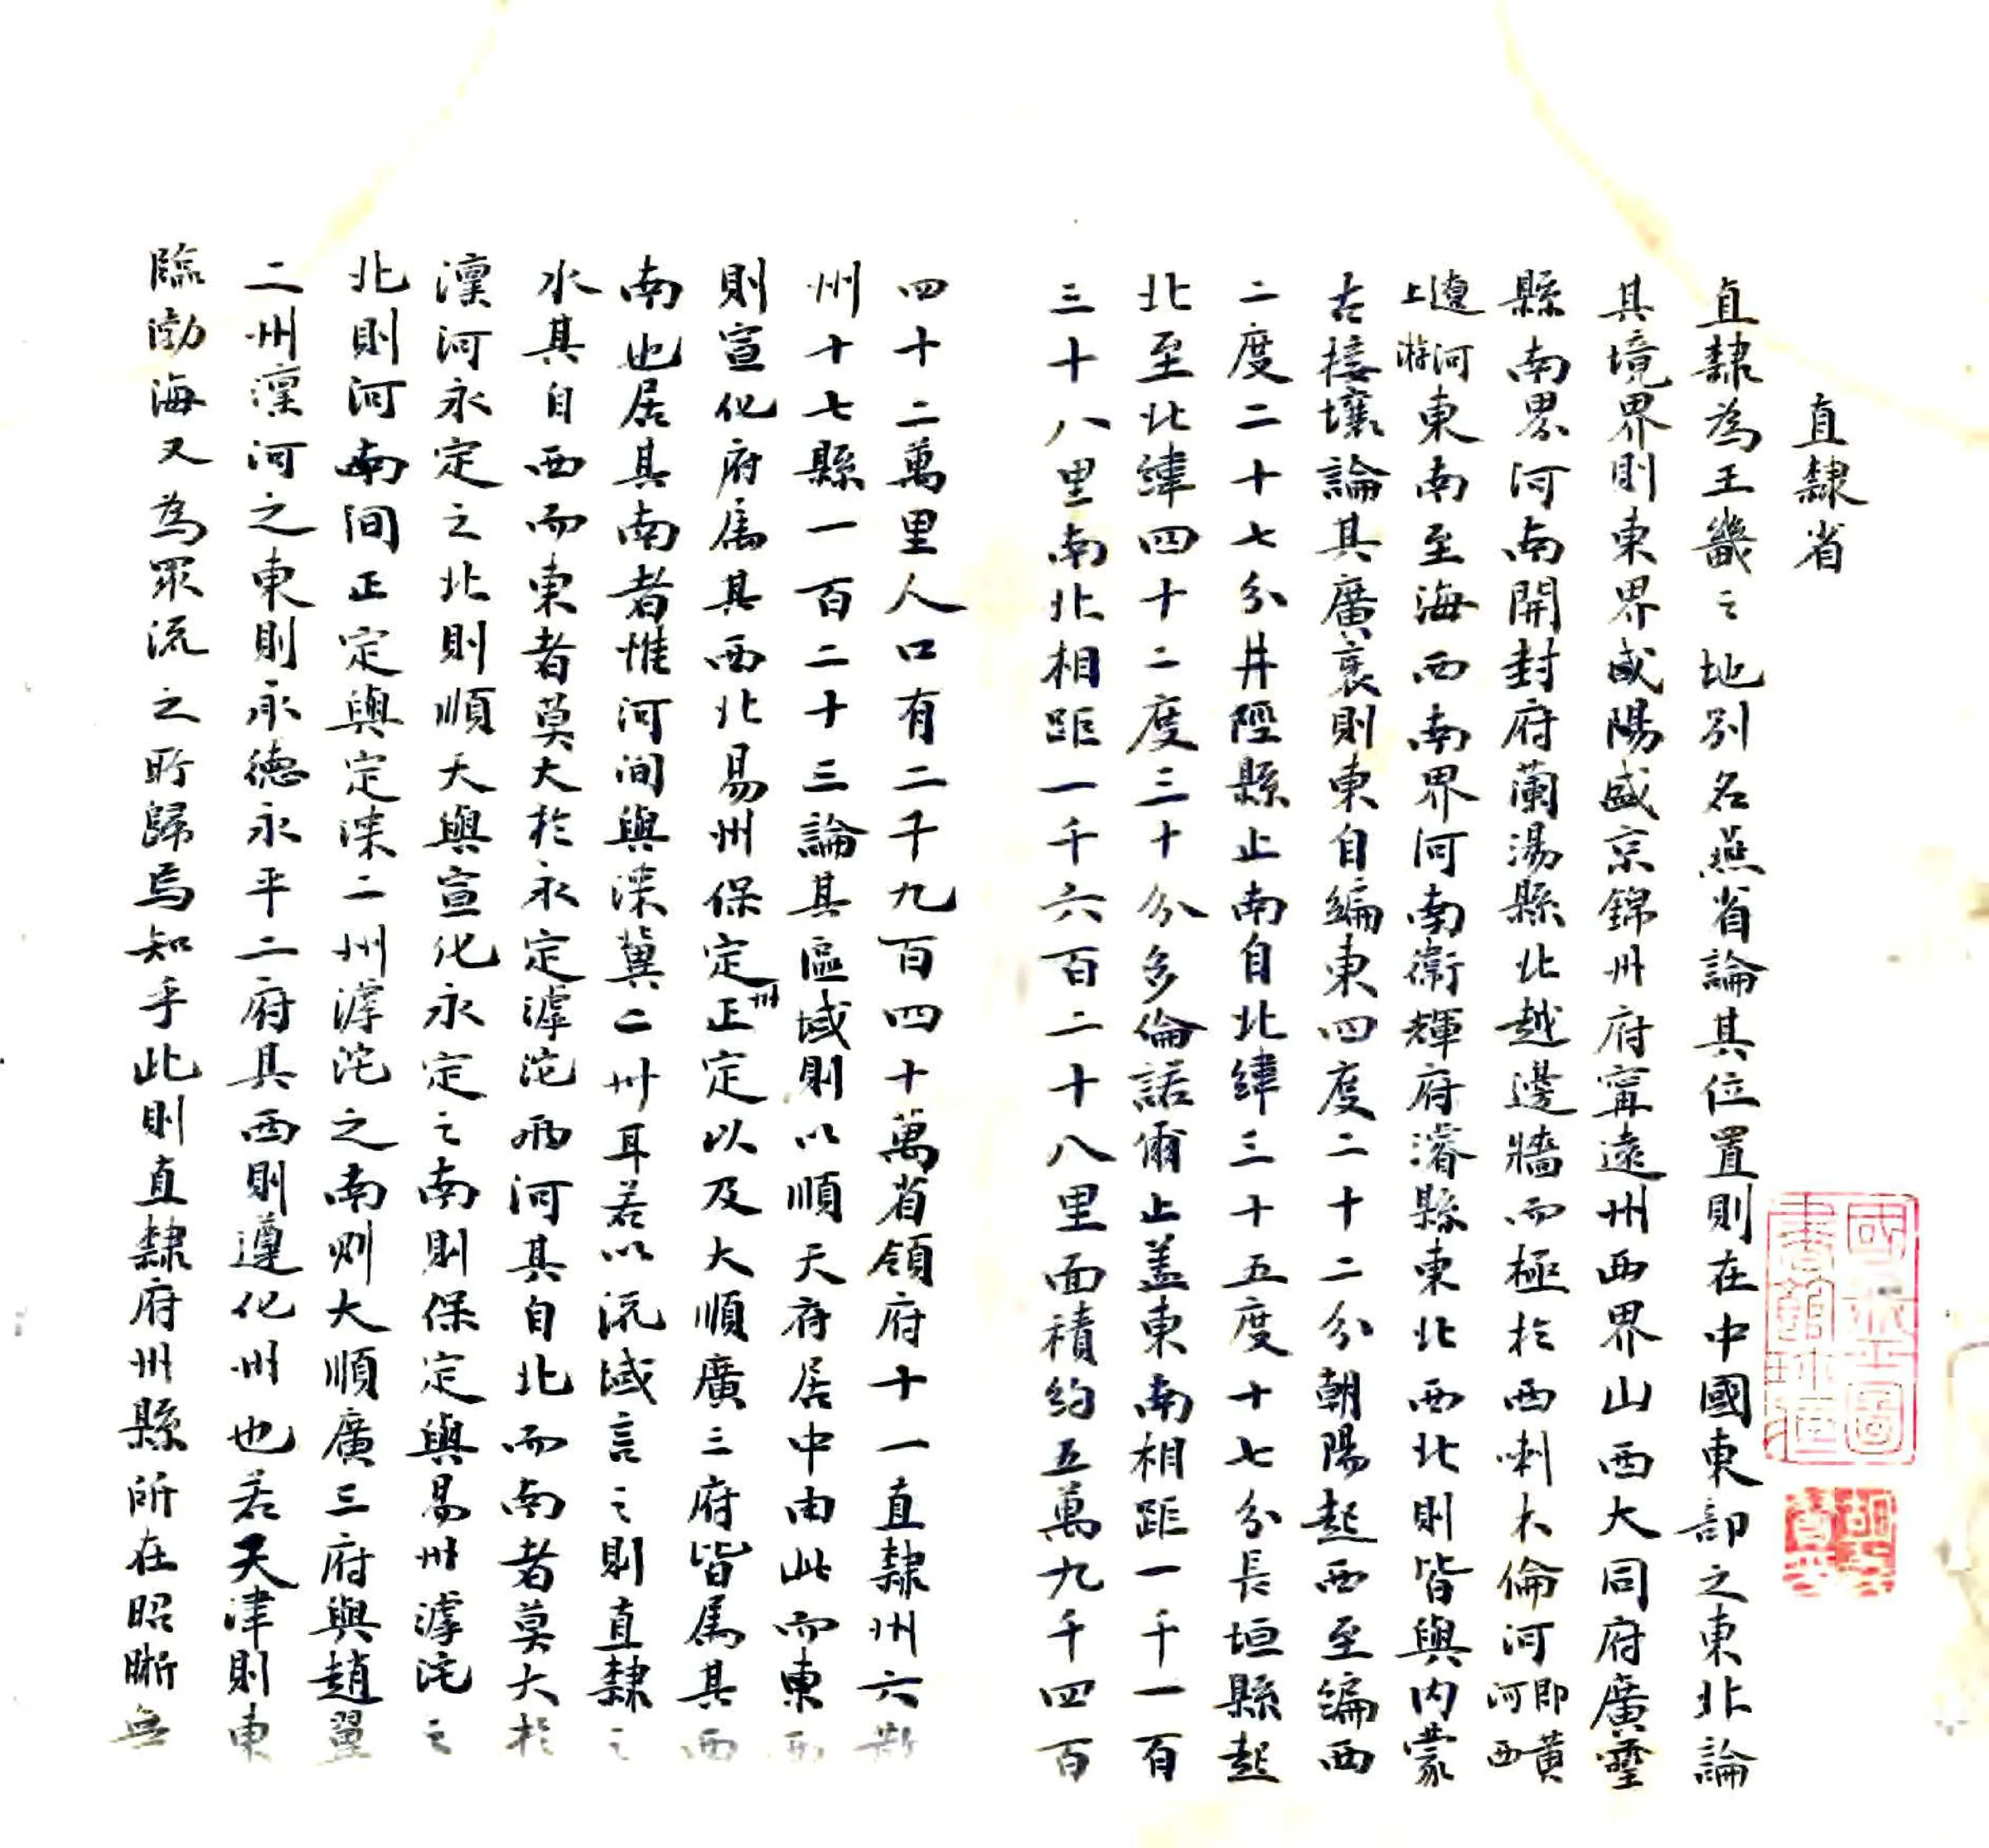 直隸省
直隸為王畿之地別名燕省論其位置則在中國東部之東北論
其境界則東界咸陽盛京錦州府寧遠州西界山西大同府廣靈
縣南界河南開封府蘭湯縣北越邊牆而極於西喇木倫河即黃河西
遼河上游東南至海西南界河南衞輝府濬縣東北西北則皆與內蒙
古接壤論其廣袤則東自編東四度二十二分朝陽起西至編西
二度二十七分井陘縣止南自北緯三十五度十七分長垣縣起
北至北緯四十二度三十分多倫諾爾止蓋東南相距一千一百
三十八里南北相距一千六百二十八里面積約五萬九千四百
四十二萬里人口有二千九百四十萬省領府十一直隸州六散
州十七縣一百二十三論其區域則以順天府居中由此而東西
則宣化府屬其西北易州保定州正定以及大順廣三府皆屬其西
南也居其南者惟河間與深冀二州耳若以流域言之則直隸之
水其自西而東者莫大於永定滹沱兩河其自北而南者莫大於
灤河永定之北則順天與宣化永定之南則保定與易州滹沱之
北則河南間正定與定深二州滹沱之南則大順廣三府與趙冀
二州灤河之東則永德永平二府其西則遵化州也若天津則東
臨渤海又為眾流之所歸焉知乎此則直隸府州縣所在昭晰無
國立北平圖書館珍藏